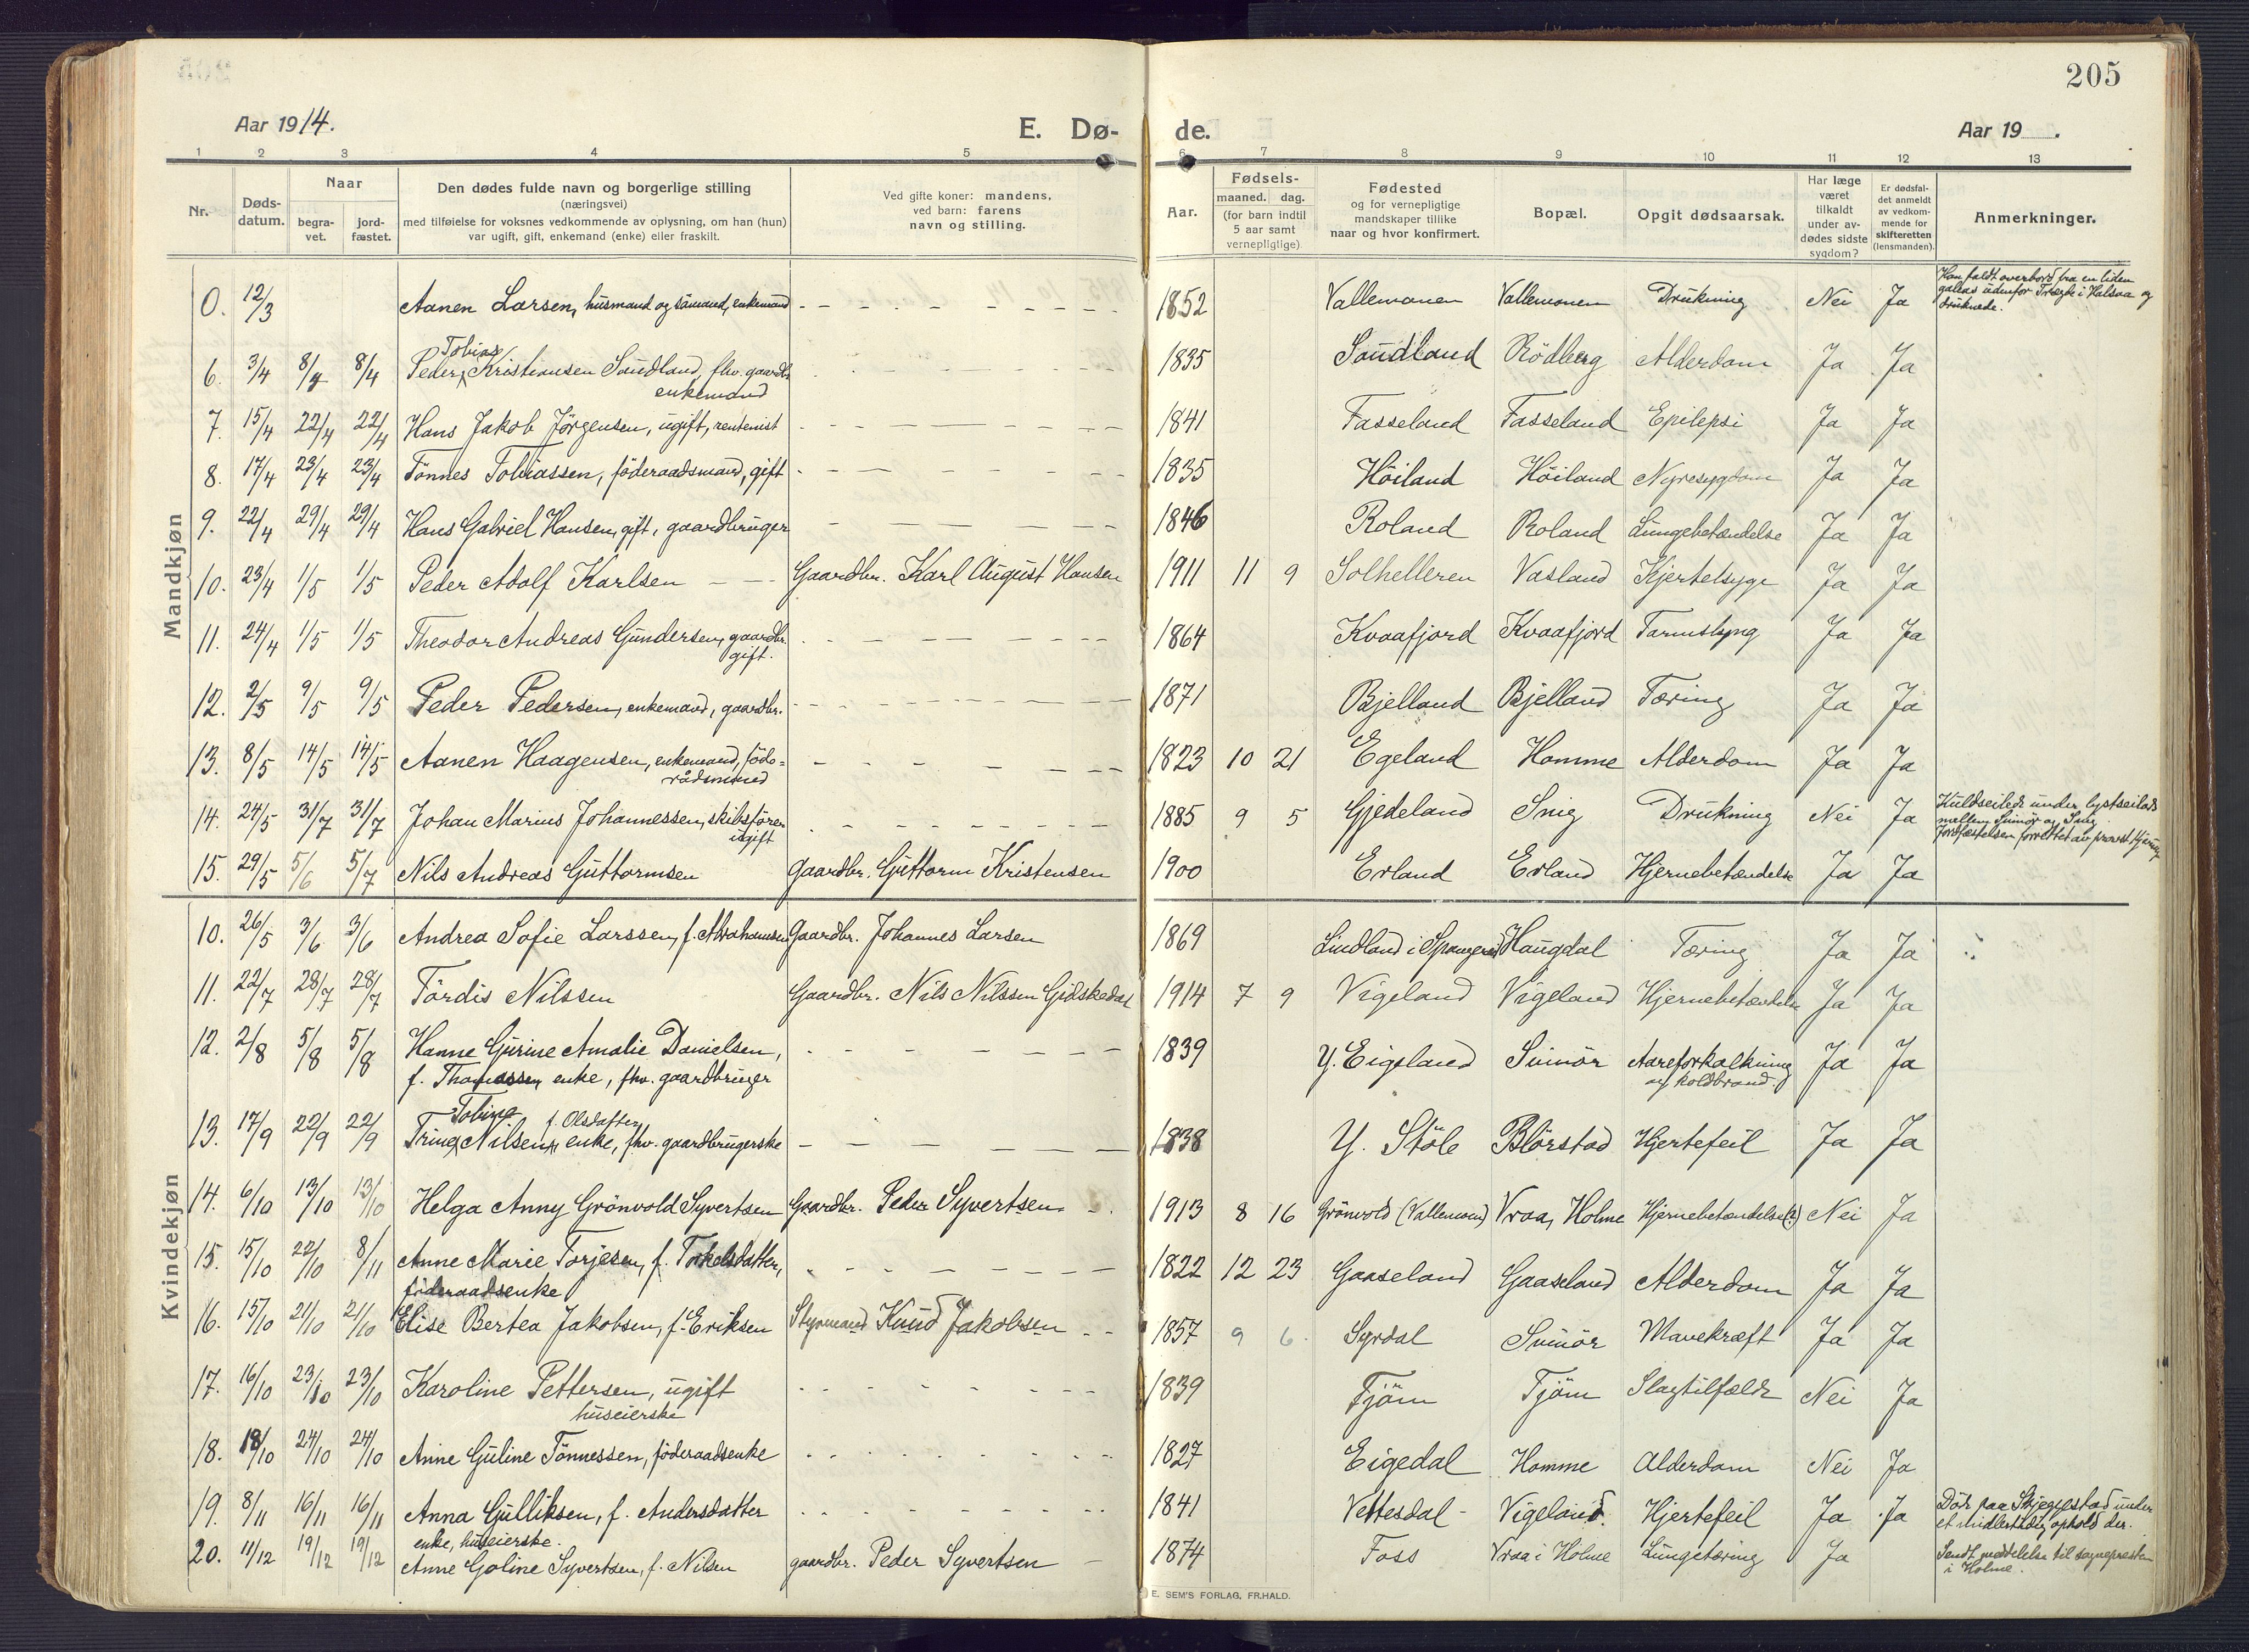 205
Aar 1914.
E. Dø-
de.
Aar 19 .
1 2 3 4 5 6 7 8 9 10 11 12 13
Nr.
Døds-
datum.
Naar
begra-
vet.
jord-
fæstet.
Den dødes fulde navn og borgerlige stilling
(næringsvei)
med tilføielse for voksnes vedkommende av oplysning, om han (hun)
var ugift, gift, enkemand (enke) eller fraskilt.
Ved gifte koner: mandens,
ved barn: farens
navn og stilling.
Aar.
Fødsels-
maaned. dag.
(for barn indtil
5 aar samt
vernepligtige)
Fødested
og for vernepligtige
mandskaper tillike
naar og hvor konfirmert.
Bopæl.
Opgit dødsaarsak.
Har læge
været
tilkaldt
under av-
dødes sidste
sygdom?
Er dødsfal-
det anmeldt
av vedkom-
mende for
skifteretten
(lensmanden).
Anmerkninger.
Mandkjøn
0. 12/3 Aanen Larsen, husmand og sömand, enkemand 1852 Vallemonen Vallemonen Drukning Nei Ja Han faldt overbord fra en liden
galeas udenfor i Halsaa og
druknede.
Tobias
6. 3/4 8/4 8/4 Peder Kristiansen Saudland, fhv. gaardbr. 1835 Saudland Rödberg Alderdom Ja Ja
enkemand
7. 15/4 22/4 22/4 Hans Jakob Jörgensen, ugift, rentenist 1841 Fasseland Fasseland Epilepsi Ja Ja
8. 17/4 23/4 23/4 Tönnes Tobiassen, föderaadsmand, gift 1835 Höiland Höiland Nyresygdom Ja Ja
9. 22/4 29/4 29/4 Hans Gabriel Hansen, gift, gaardbruger 1846 Roland Roland Lungebetændelse Ja Ja
10. 23/4 1/5 1/5 Peder Adolf Karlsen Gaardbr. Karl August Hansen 1911 11 9 Solhelleren Vasland Kjertelsyge Ja Ja
11. 24/4 1/5 1/5 Theodor Andreas Gundersen, gaardbr. 1864 Kvaafjord Kvaafjord Tarmslyng Ja Ja
gift.
12. 2/5 9/5 9/5 Peder Pedersen, enkemand, gaardbr. 1871 Bjelland Bjelland Tæring Ja Ja
13. 8/5 14/5 14/5 Aanen Haagensen, enkemand, föde= 1823 10 21 Egeland Homme Alderdom Ja Ja
rådsmand
14. 24/5 31/7 31/7 Johan Marius Johannessen, skibsförer 1885 9 5 Gjedeland Snig Drukning Nei Ja Kuldseilede under lystseilads
ugift mellem Svinör og Snig
Jordfæstelsen forrettet av provst
15. 29/5 5/6 5/7 Nils Andreas Guttormsen Gaardbr. Guttorm Kristensen 1900 Erland Erland Hjernebetændelse Ja Ja
Kvindekjøn
10. 26/5 3/6 3/6 Andrea Sofie Larssen, f. Abrahamsen Gaardbr. Johannes Larsen 1869 Lindland i Spangereid Haugdal Tæring Ja Ja
11. 22/7 28/7 28/7 Tördis Nilssen Gaardbr. Nils Nilssen Gidskedal 1914 7 9 Vigeland Vigeland Hjernebetændelse Ja Ja
12. 2/8 5/8 5/8 Hanne Gurine Amalie Danielsen, 1839 Y. Eigeland Svinör Aareforkalkning Ja Ja
f. Thomassen, enke, fhv. gaardbruger og koldbrand.
Tobine f. Olsdatter
13. 17/9 22/9 22/9 Trine Nilsen, enke, fhv. gaardbrugerske 1838 Y. Stöle Blörstad Hjertefeil Ja Ja
14. 6/10 13/10 13/10 Helga Anny Grönvold Syvertsen Gaardbr. Peder Syvertsen 1913 8 16 Grönvold (Vallemoen) Vraa, Holme Hjernebetændelse(?) Nei Ja
15. 15/10 22/10 8/11 Anne Marie Torjesen, f. Torkelsdatter, 1822 12 23 Gaaseland Gaaseland Alderdom Ja Ja
föderaadsenke
16. 15/10 21/10 21/10 Elise Bertea Jakobsen, f. Eriksen Styrmand Knud Jakobsen 1857 9 6 Syrdal Svinör Mavekræft Ja Ja
17. 16/10 23/10 23/10 Karoline Pettersen, ugift 1839 Tjöm Tjöm Slagtilfælde Nei Ja
huseierske
18. 18/10 24/10 24/10 Anne Guline Tönnessen, föderaadsenke 1827 Eigedal Homme Alderdom Nei Ja
19. 8/11 16/11 16/11 Anna Gulliksen, f. Andersdatter 1841 Vettesdal Vigeland. Hjertefeil Ja Ja Död paa Skjeggestad under
enke, huseierske. et midlertidig ophold der.
20. 11/12 19/12 19/12 Anne Goline Syvertsen, f. Nilsen gaardbr. Peder Syvertsen 1874 Foss Vraa i Holme Lungetæring Ja Sendt meddelelse til sognepresten
i Holme.
E. SEM'S FORLAG, FR.HALD.